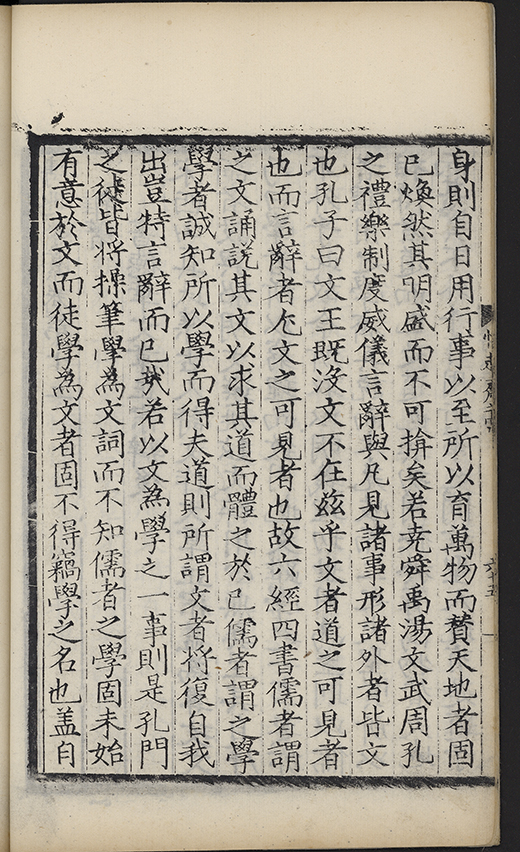 身則自日用行事以至所以育萬物而賛天地者固
已煥然其明盛而不可揜矣若堯舜禹湯文武周孔
之禮樂制度威儀言辭與凡見諸事形諸外者皆文
也孔子曰文王既没文不在兹乎文者道之可見者
也而言辭者尤文之可見者也故六經四書儒者謂
之文誦說其文以求其道而體之於已儒者謂之學
學者誠知所以學而得夫道則所謂文者將復自我
出豈特言辭而已㢤若以文為學之一事則是孔門
之徒皆将操筆學為文詞而不知儒者之學固未始
有意於文而徒學為文者固不得竊學之名也盖自
六十五